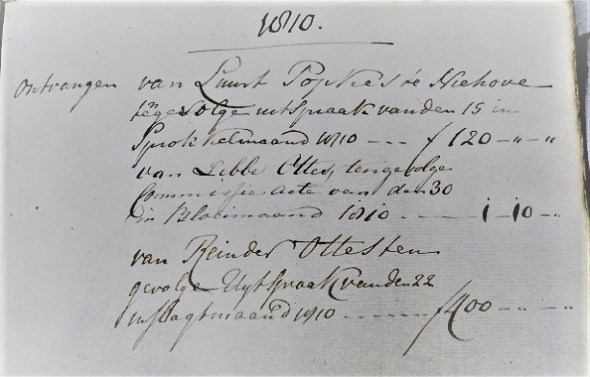 1810.
Ontvangen van Luurt Popkes te Niehove
tengevolge uitspraak van den 15 in
Sprokkelmaand 1810 --- f 120 -"-"
van Libbe Ottes, tengevolge
Commissie acte van den 30
in Bloeimaand 1810 ---- 1-10-"
van Reinder Ottes ten
gevolge Uytspraak van den 22
in Slagtmaand 1810 ------ f 400 -"-"